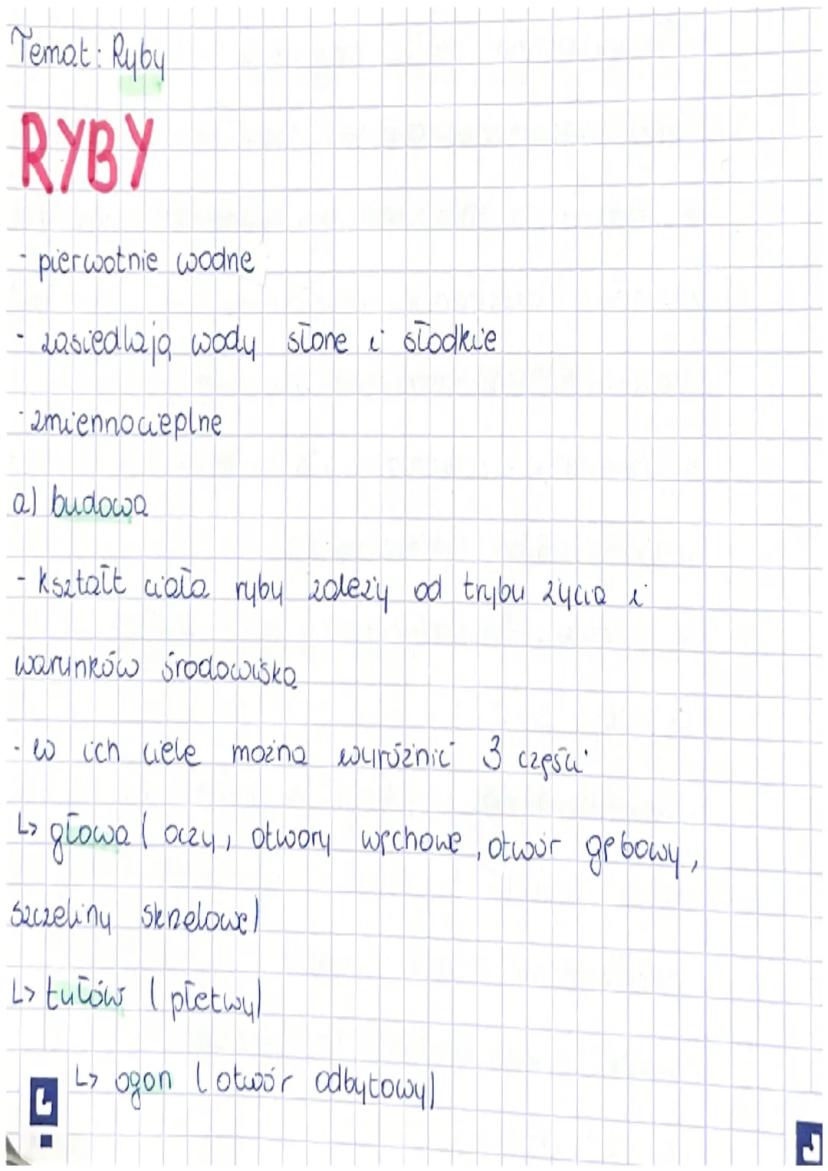 Temat: Ryby
RYBY
- pierwotnie wodne
- zasiedlają wody słone i słodkie
- zmiennocieplne
a) budowa
- kształt ciała ryby zależy od trybu życia i
warunków środowiska
- w ich ciele można wyróżnić 3 części
↳ głowa (oczy, otwory węchowe, otwór gębowy,
szczeliny skrzelowe)
↳ tułów (płetwy)
↳ ogon (otwór odbytowy)